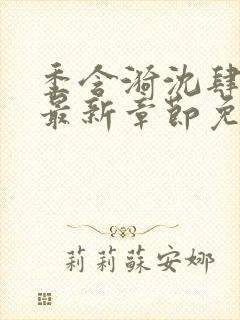 季含漪沈肆
最新章節免
莉莉蘇安娜